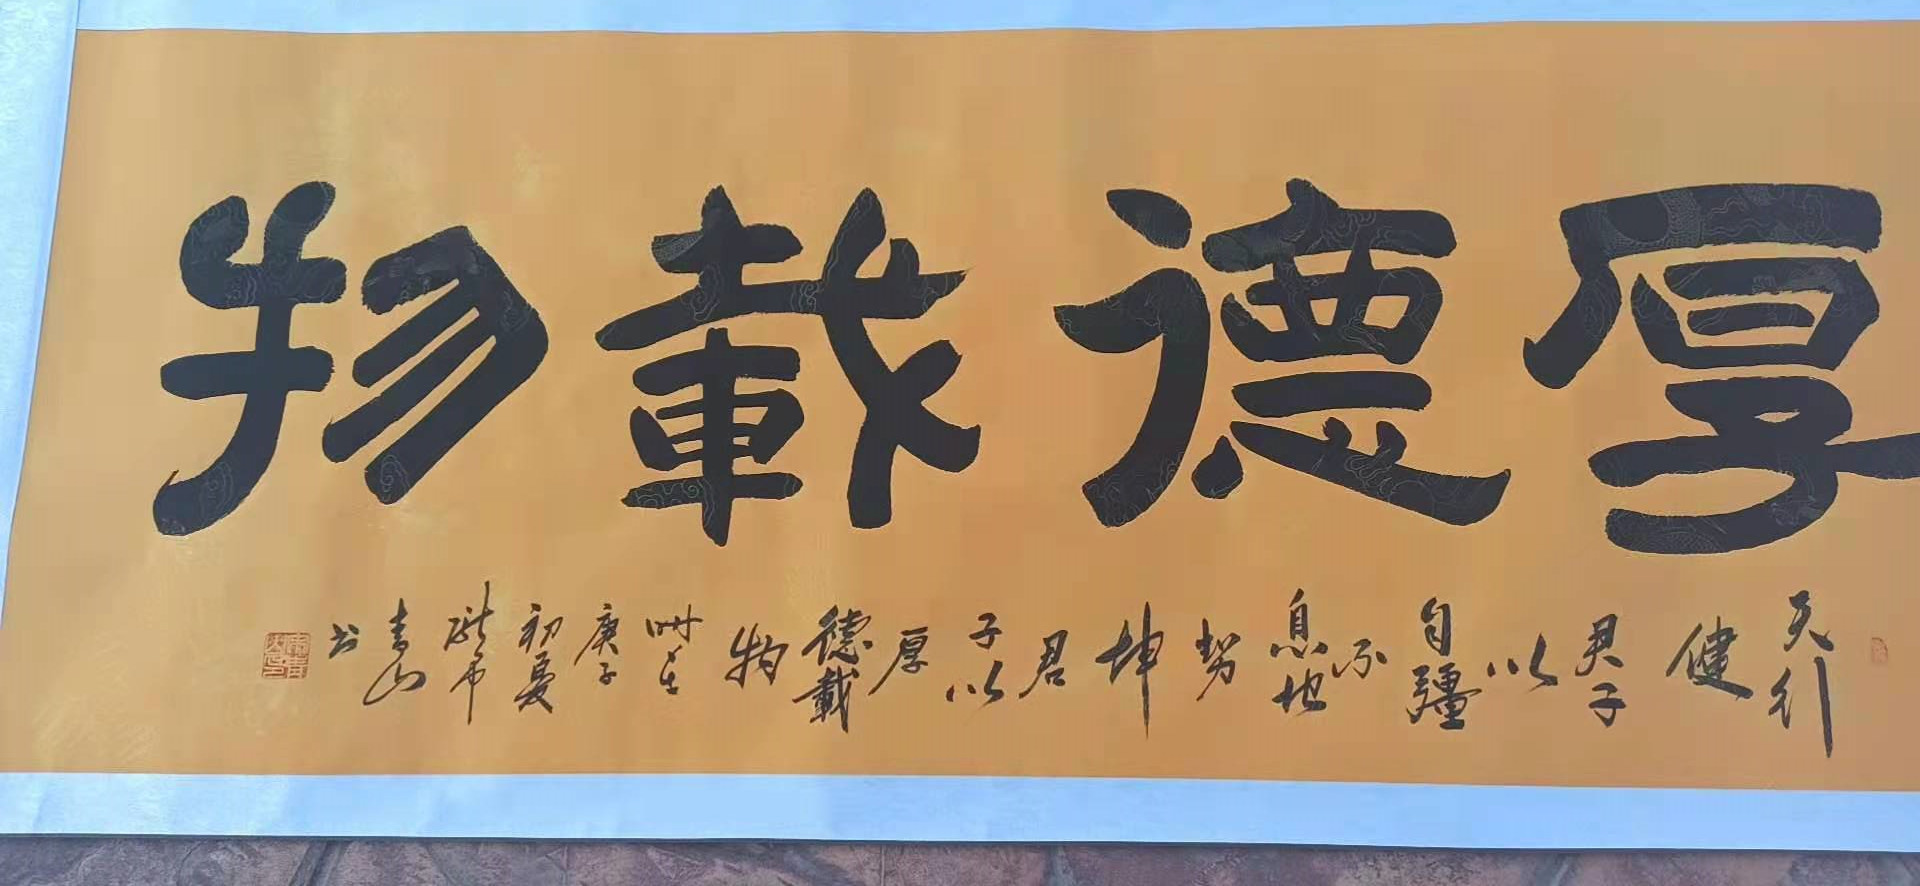 厚德載物
天行健君子以自彊不息地势坤君子以厚德載物
時在庚子初夏
青山书